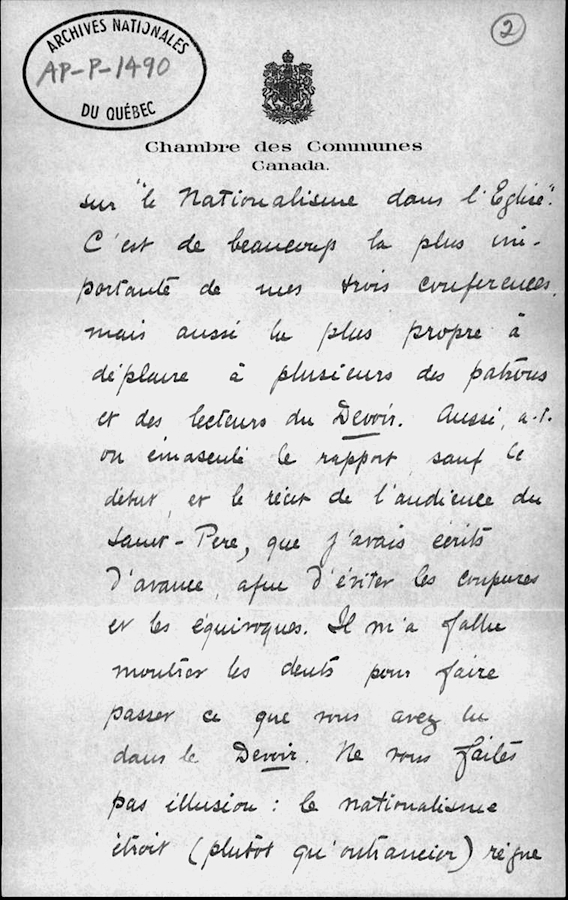 ARCHIVES NATIONALES
AP-P-1490
DU QUÉBEC
2
Chambre des Communes
Canada.
sur "le Nationalisme dans l'Eglise".
C'est de beaucoup la plus im-
portante de mes trois conferences,
mais aussi la plus propre à
déplaire à plusieurs des patrons
et des lecteurs du Devoir. Aussi, a-t-
on émasculé le rapport, sauf le
début, et le récit de l'audience du
Saint-Pere, que j'avais écrits
d'avance, afin d'éviter les coupures
et les équivoques. Il m'a fallu
montrer les dents pour faire
passer ce que vous avez lu
dans le Devoir. Ne vous faites
pas illusion : le nationalisme
étroit (plutôt qu'outrancier) règne